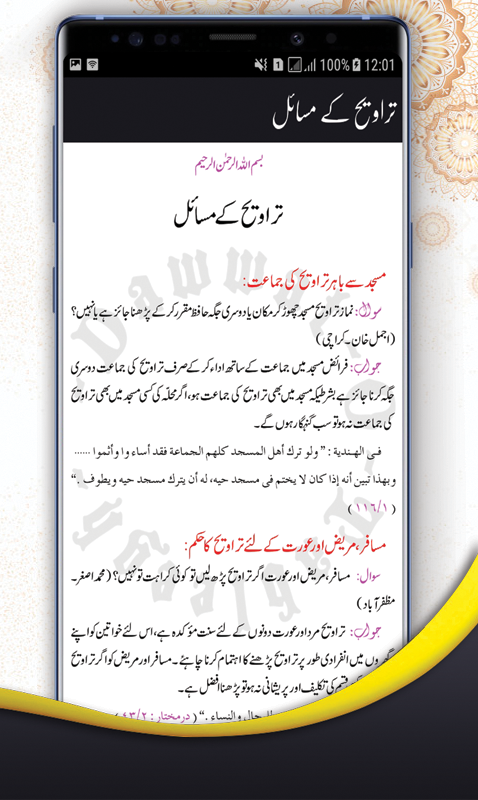 100% 12:01
تراویح کے مسائل
بسم اللہ الرحمٰن الرحیم
تراویح کے مسائل
مسجد سے باہر تراویح کی جماعت:
سوال: نماز تراویح مسجد چھوڑ کر مکان یا دوسری جگہ حافظ مقرر کر کے پڑھنا جائز ہے یا نہیں؟
(اجمل خان۔ کراچی)
جواب: فرائض مسجد میں جماعت کے ساتھ ادا کر کے صرف تراویح کی جماعت دوسری
جگہ کرنا جائز ہے بشرطیکہ مسجد میں بھی تراویح کی جماعت ہو، اگر محلہ کی کسی مسجد میں بھی تراویح
کی جماعت نہ ہو تو سب گنہگار ہوں گے۔
فی الهندیة : " ولو ترك أهل المسجد كلهم الجماعة فقد أساء وا وأثموا ......
وبهذا تبين أنه إذا كان لا يختم فى مسجد حيه، له أن يترك مسجد حيه ويطوف . "
(١١٦/١)
مسافر، مریض اور عورت کے لئے تراویح کا حکم:
سوال: مسافر، مریض اور عورت اگر تراویح پڑھ لیں تو کوئی کراہت تو نہیں؟ (محمد اصغر۔
مظفر آباد)
جواب: تراویح مرد اور عورت دونوں کے لئے سنت مؤکدہ ہے، اس لئے خواتین کو اپنے
میں انفرادی طور پر تراویح پڑھنے کا اہتمام کرنا چاہئے۔ مسافر اور مریض کو اگر تراویح
قسم کی تکلیف اور پریشانی نہ ہو تو پڑھنا افضل ہے۔
والنساء . " (درمختار : ٤٣/٢)